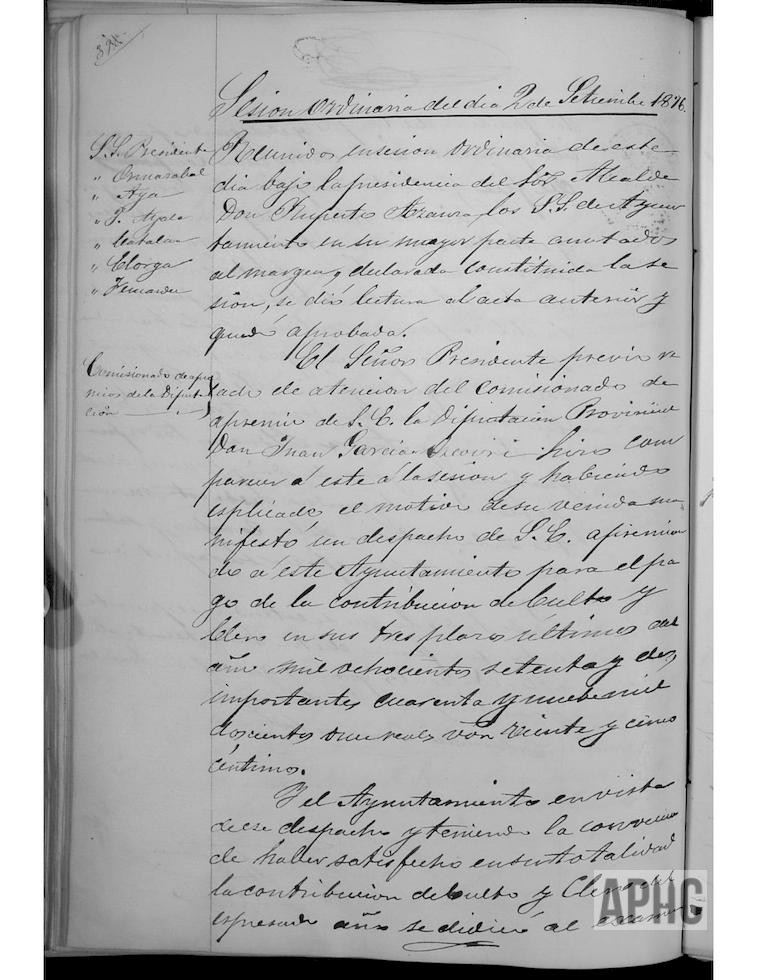 Sesion ordinaria del dia 2 de Setiembre 1876.
S.S. Presidente
" Ormazabal
" Aya
" J. Ayala
" Catalan
" Elorga
" Fernandez
Reunidos en sesion ordinaria de este
dia bajo la presidencia del Sor Alcalde
Don Ruperto Azaura los S.S. de Ayun
tamiento en su mayor parte anotados
al margen, declarada constituida la se
sion, se dió lectura al acta anterior y
quedó aprobada.
Comisionado de apre
mios de la Diputa
ción
El Señor Presidente previo re
cado de atencion del comisionado de
apremio de S. E. la Diputacion Provincial
Don Juan Garcia hizo com
parecer á este á la sesion y habiendo
esplicado el motivo de su venida ma
nifestó un despacho de S. E. apremian
do á este Ayuntamiento para el pa
go de la contribucion de Culto y
Clero en sus tres plazos últimos del
año mil ochocientos setenta y dos
importantes cuarenta y nueve mil
doscientos once reales von veinte y cinco
céntimos.
Y el Ayuntamiento en vista
de ese despacho y teniendo la
de haber satisfecho en su totalidad
la contribucion de Culto y Clero del
espresado año se dedicó al examen
APHG